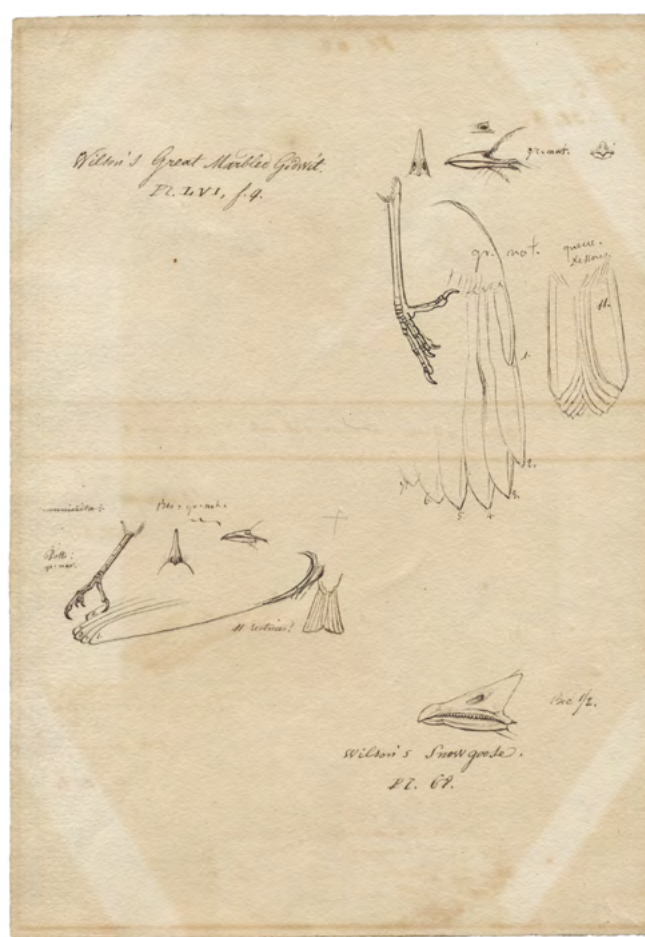 Wilson's Great Marbled Godwit.
Pl. LVI, f. 4.
gr. nat.
gr. nat.
queue.
dessous.
11.
1.
2.
3.
4.
5.
6.
7.
Bec: gr. nat.
Patte:
gr. nat.
1.
11 rectrices?
Bec 1/2.
Wilson's Snow goose.
Pl. 68.